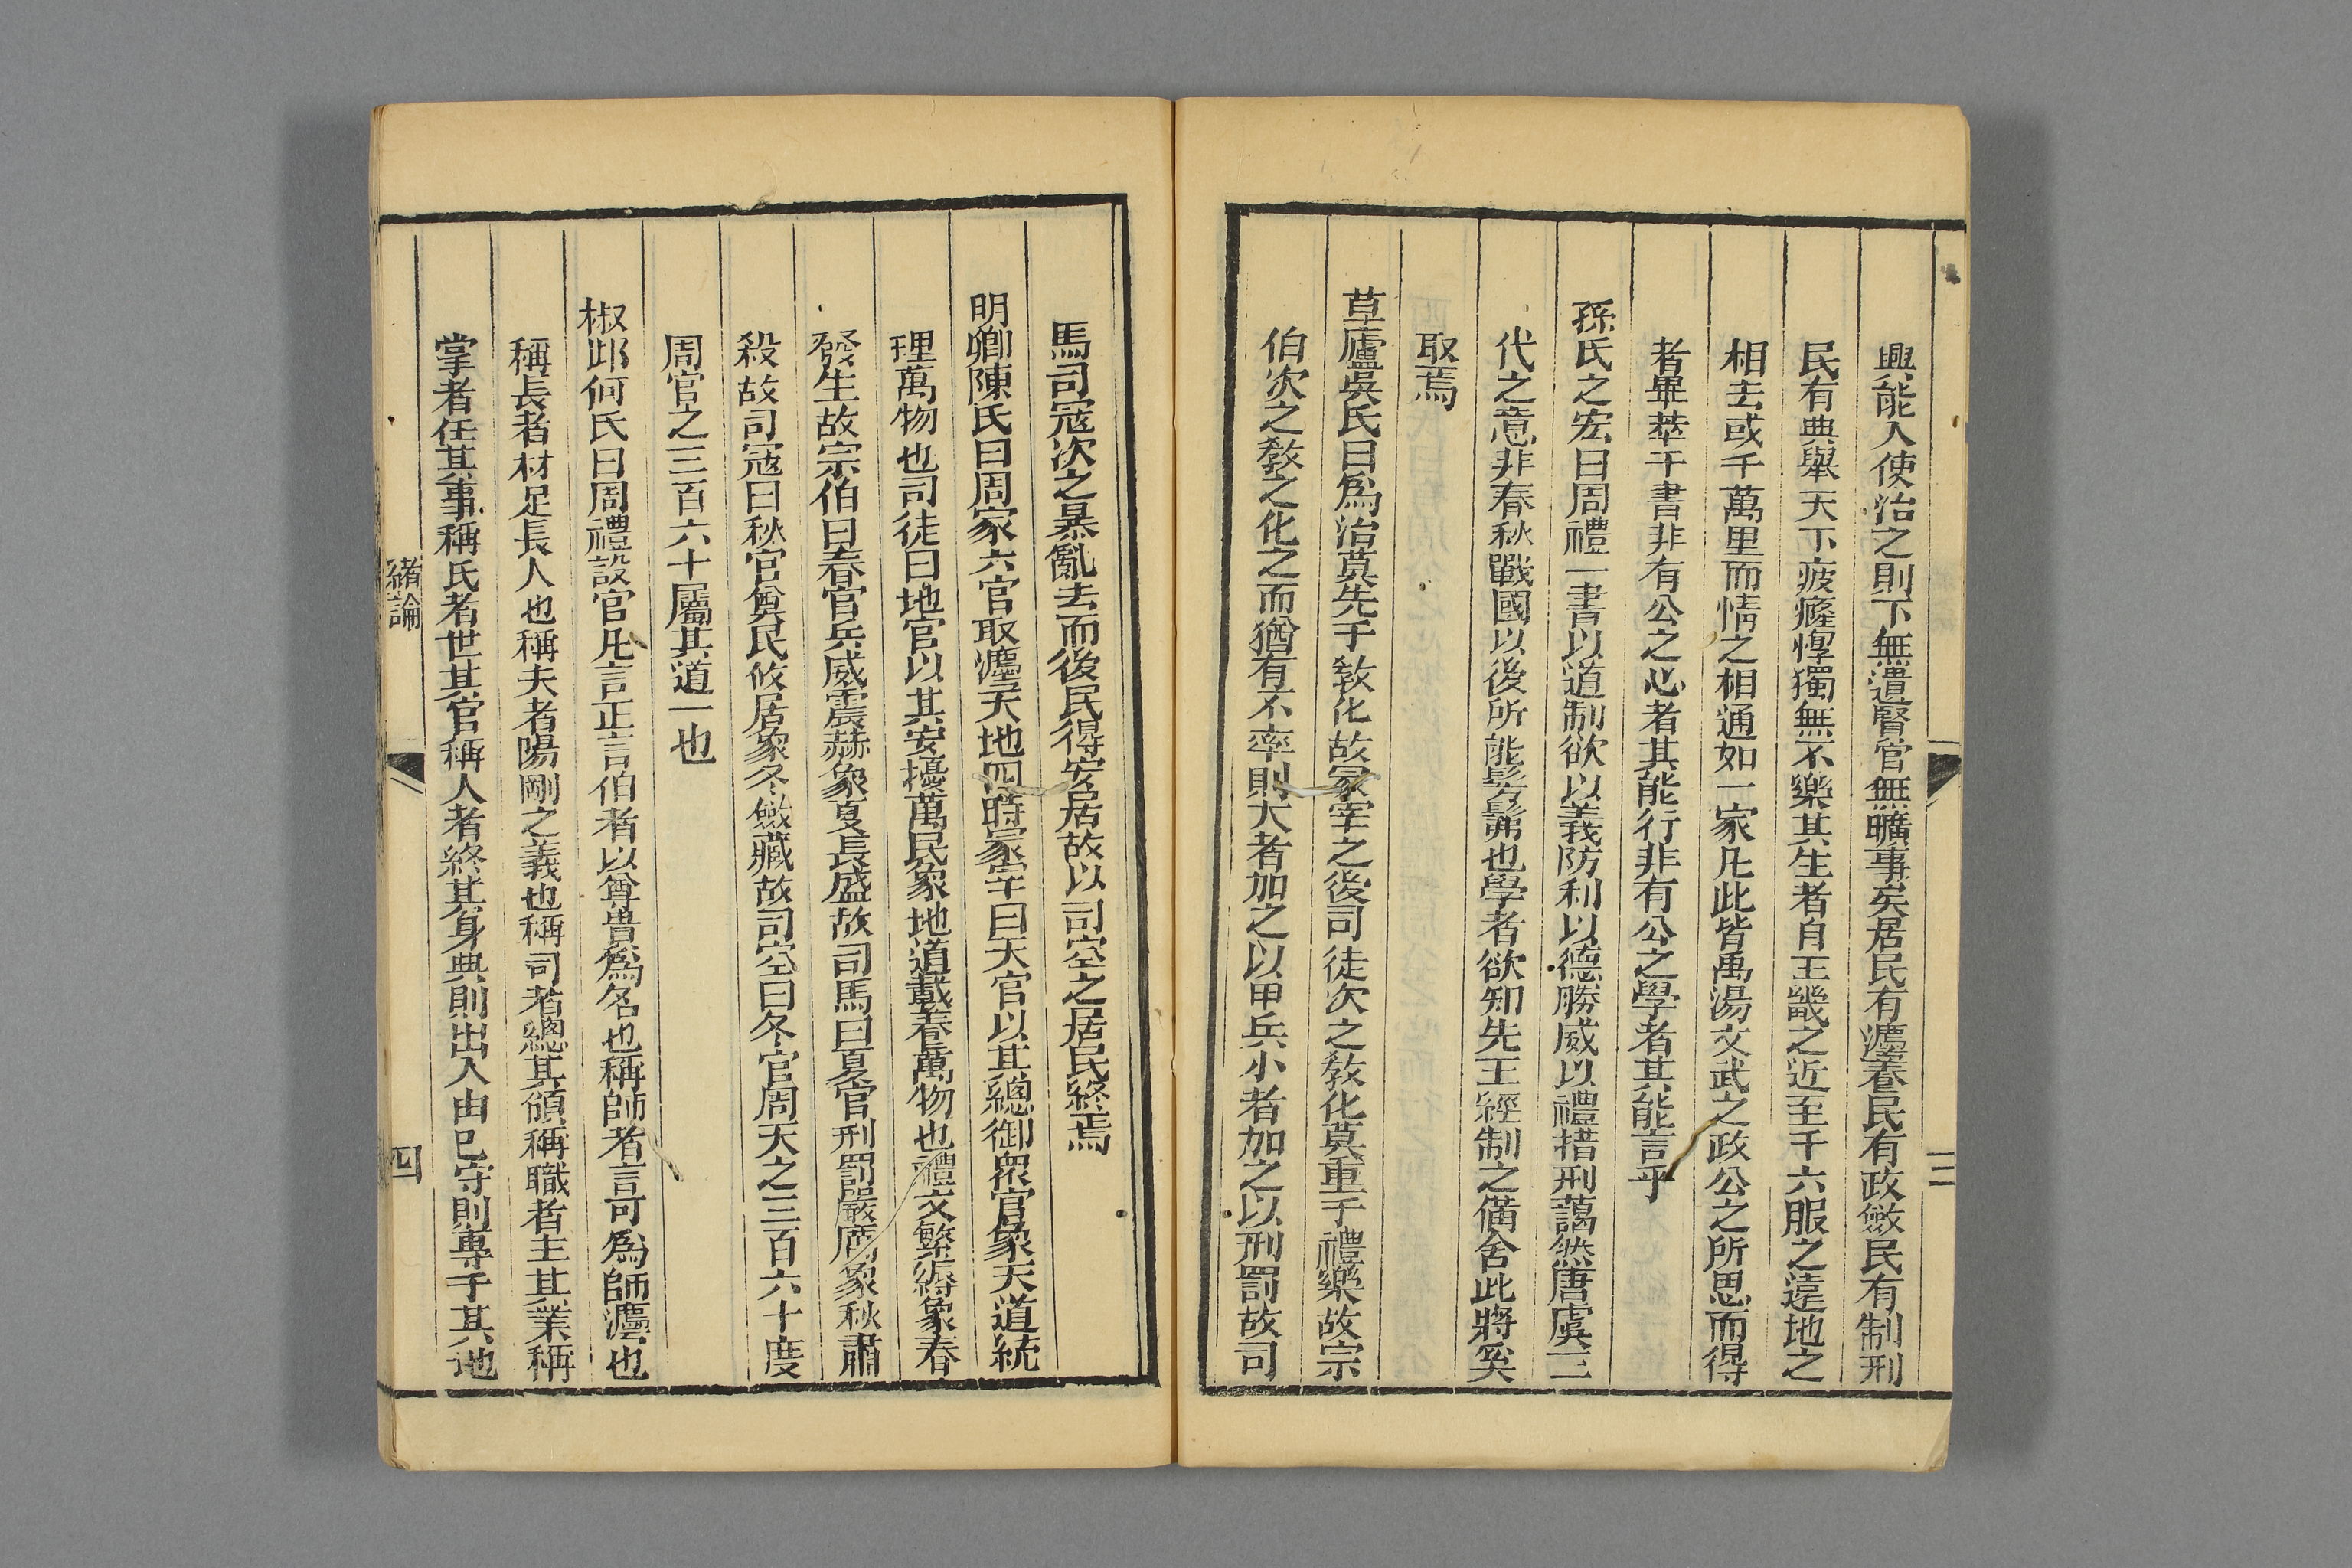 興能人使治之則下無遺賢官無曠事矣居民有灋養民有政斂民有制刑
民有典舉天下疲癃惸獨無不樂其生者自王畿之近至于六服之遠地之
相去或千萬里而情之相通如一家凡此皆禹湯文武之政公之所思而得
者畢萃于書非有公之心者其能行非有公之學者其能言乎
孫氏之宏曰周禮一書以道制欲以義防利以德勝威以禮措刑藹然唐虞三
代之意非春秋戰國以後所能髣髴也學者欲知先王經制之僃舍此將奚
取焉
草廬吳氏曰爲治莫先于敎化故冢宰之後司徒次之敎化莫重于禮樂故宗
伯次之敎之化之而猶有不率則大者加之以甲兵小者加之以刑罰故司
三
馬司冦次之暴亂去而後民得安居故以司空之居民終焉
明卿陳氏曰周家六官取灋天地四時冡宰曰天官以其總御衆官象天道統
理萬物也司徒曰地官以其安擾萬民象地道載養萬物也禮文繁縟象春
發生故宗伯曰春官兵威震赫象夏長盛故司馬曰夏官刑罰嚴厲象秋肅
殺故司冦曰秋官奠民攸居象冬斂藏故司空曰冬官周天之三百六十度
周官之三百六十屬其道一也
椒邱何氏曰周禮設官凡言正言伯者以尊貴爲名也稱師者言可爲師灋也
稱長者材足長人也稱夫者陽剛之義也稱司者總其領稱職者主其業稱
掌者任其事稱氏者世其官稱人者終其身典則出入由已守則專于其地
緒論
四